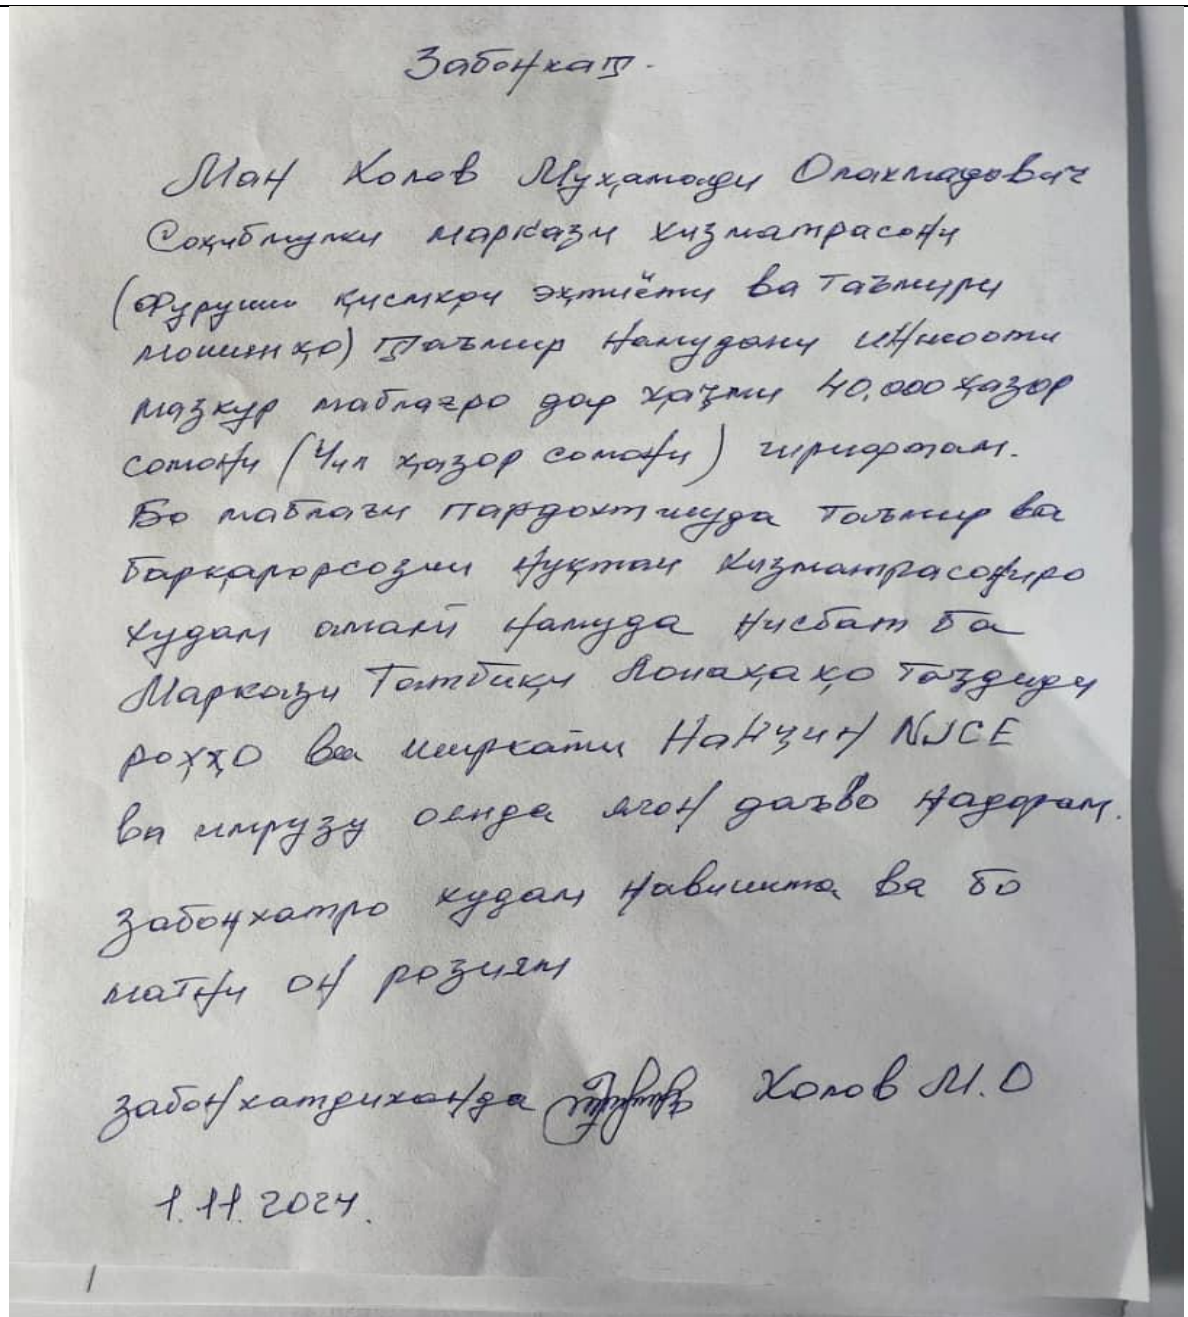 Забонхат.
Ман Холов Муҳамади Олахмадович
Соҳибмулки маркази хизматрасони
(Фуруши қисмҳои эҳтиёти ва таъмири
мошинҳо) Таъмир намудани иншооти
мазкур маблағро дар ҳаҷми 40.000 ҳазор
сомони (Чил ҳазор сомони) гирифтам.
Бо маблаги пардохтшуда таъмир ва
барқарорсозии нуқтаи хизматрасониро
худам амалӣ намуда нисбат ба
Маркази Татбиқи Лоиҳаҳо Таҷдиди
роҳҳо ва ширкати Нанҷин NJCE
ва имрузу оянда ягон даъво надорам.
Забонхатро худам навишта ва бо
матни он розиям
забонхатдиханда Холов М.О
1.11.2024.